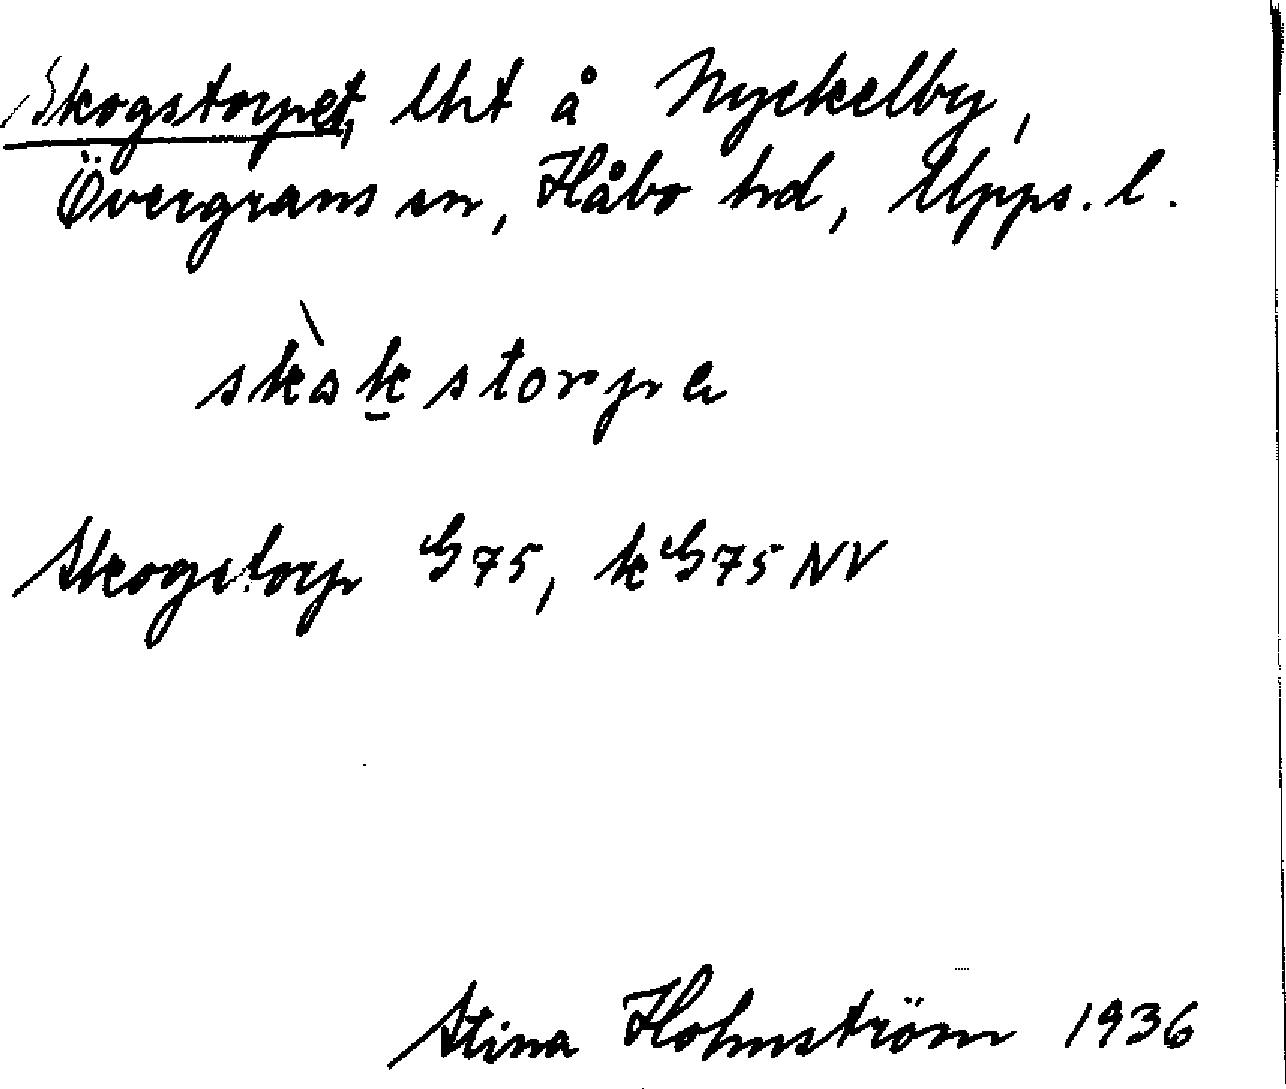 Skogstorpet, lht å Nyckelby,
Övergrans sn, Håbo hd, Upps. l.
skàkstorpe
Skogstorp G75, kG75 NV
Stina Holmström 1936